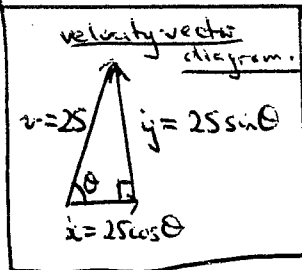 velocity vector
diagram.
v=25
ẏ = 25 sinθ
θ
ẋ = 25cosθ